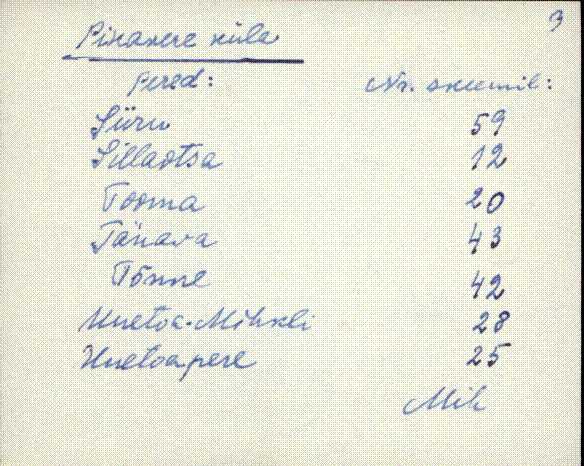 3
Pikavere küla
Pered:	Nr. skeemil:
Siiru	59
Sillaotsa	12
Tooma	20
Tänava	43
Tõnne	42
Uuetoa-Mihkli	28
Uuetoapere	25
Mih